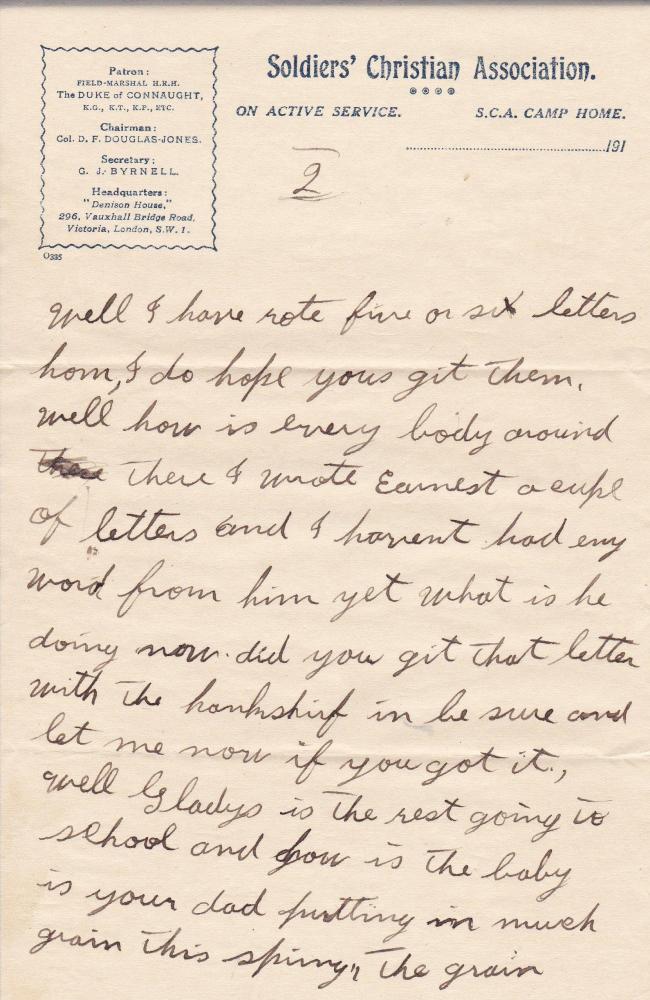 Patron:
FIELD-MARSHAL H.R.H.
The DUKE of CONNAUGHT,
K.G., K.T., K.P., ETC.
Chairman:
Col. D. F. DOUGLAS-JONES.
Secretary:
G. J. BYRNELL.
Headquarters:
"Denison House,"
296, Vauxhall Bridge Road,
Victoria, London, S.W.1.
O335
Soldiers' Christian Association.
ON ACTIVE SERVICE. S.C.A. CAMP HOME.
191
2
Well I have rote five or six letters
hom, I do hope yous git them.
Well how is every body around
there I wrote Earnest a cupl
of letters and I havent had eny
word from him yet what is he
doing now. did you git that letter
with the hankshirf in be sure and
let me now if you got it.,
Well Gladys is the rest going to
school and how is the baby
is your dad putting in much
grain this spring, the grain